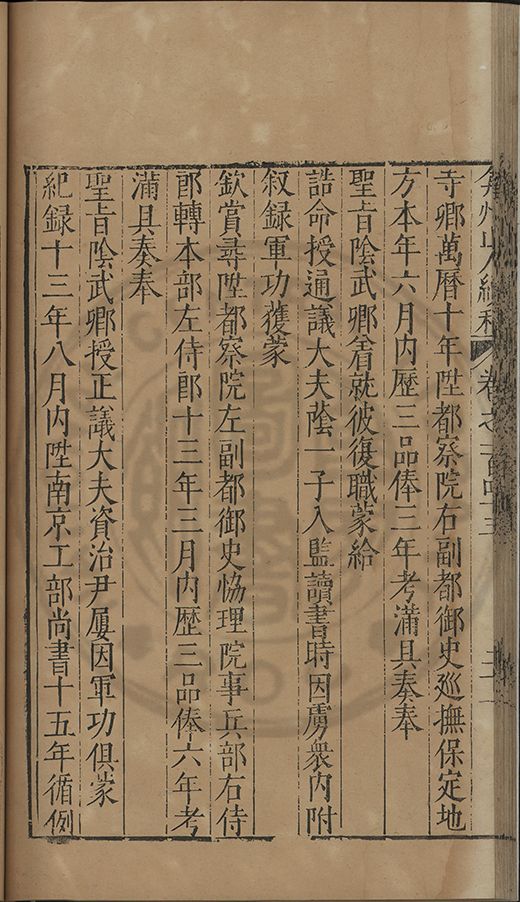 弇州山人續稿 卷之一百四十三
寺卿萬曆十年陞都察院右副都御史巡撫保定地
方本年六月内歷三品俸三年考滿具奏奉
聖旨陰武卿着就彼復職蒙給
誥命授通議大夫蔭一子入監讀書時因虜衆内附
叙録軍功獲蒙
欽賞尋陞都察院左副都御史協理院事兵部右侍
郎轉本部左侍郎十三年三月内歷三品俸六年考
滿具奏奉
聖旨陰武卿授正議大夫資治尹屢因軍功俱蒙
紀録十三年八月内陞南京工部尚書十五年循例